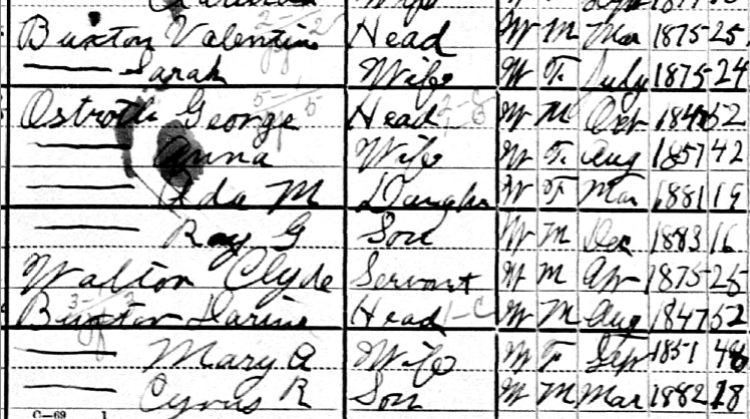 Wife
Buxton Valentine Head W M Mar 1875 25
—— Sarah Wife W F July 1875 24
Ostroth George Head W M Oct 1847 52
—— Anna Wife W F Aug 1857 42
—— Ida M Daughter W F Mar 1881 19
—— Ray G Son W M Dec 1883 16
Walton Clyde Servant W M Apr 1875 25
Buxton Darius Head W M Aug 1847 52
—— Mary A Wife W F Sep 1851 48
—— Cyrus R Son W M Mar 1882 18
C—69 1